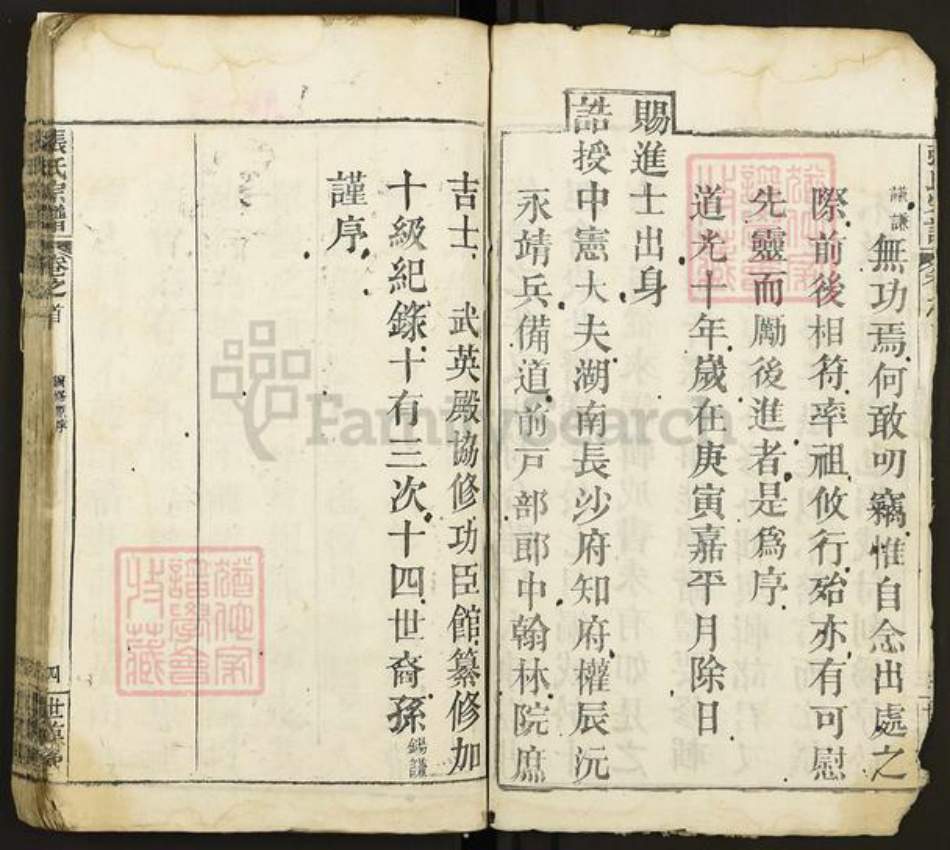 謙無功焉何敢叨竊惟自念出處之
際前後相符率祖攸行殆亦有可慰
先靈而勵後進者是爲序
道光十年歲在庚寅嘉平月除日
賜進士出身
誥授中憲大夫湖南長沙府知府權辰沅
永靖兵備道前戸部郎中翰林院庶
吉士 武英殿協修功臣館纂修加
十級紀錄十有三次十四世裔孫
謹序
張氏宗譜 卷之首
四
FamilySearch